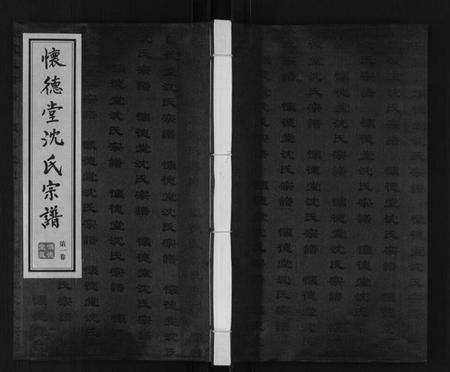 懷德堂沈氏宗譜
第一卷